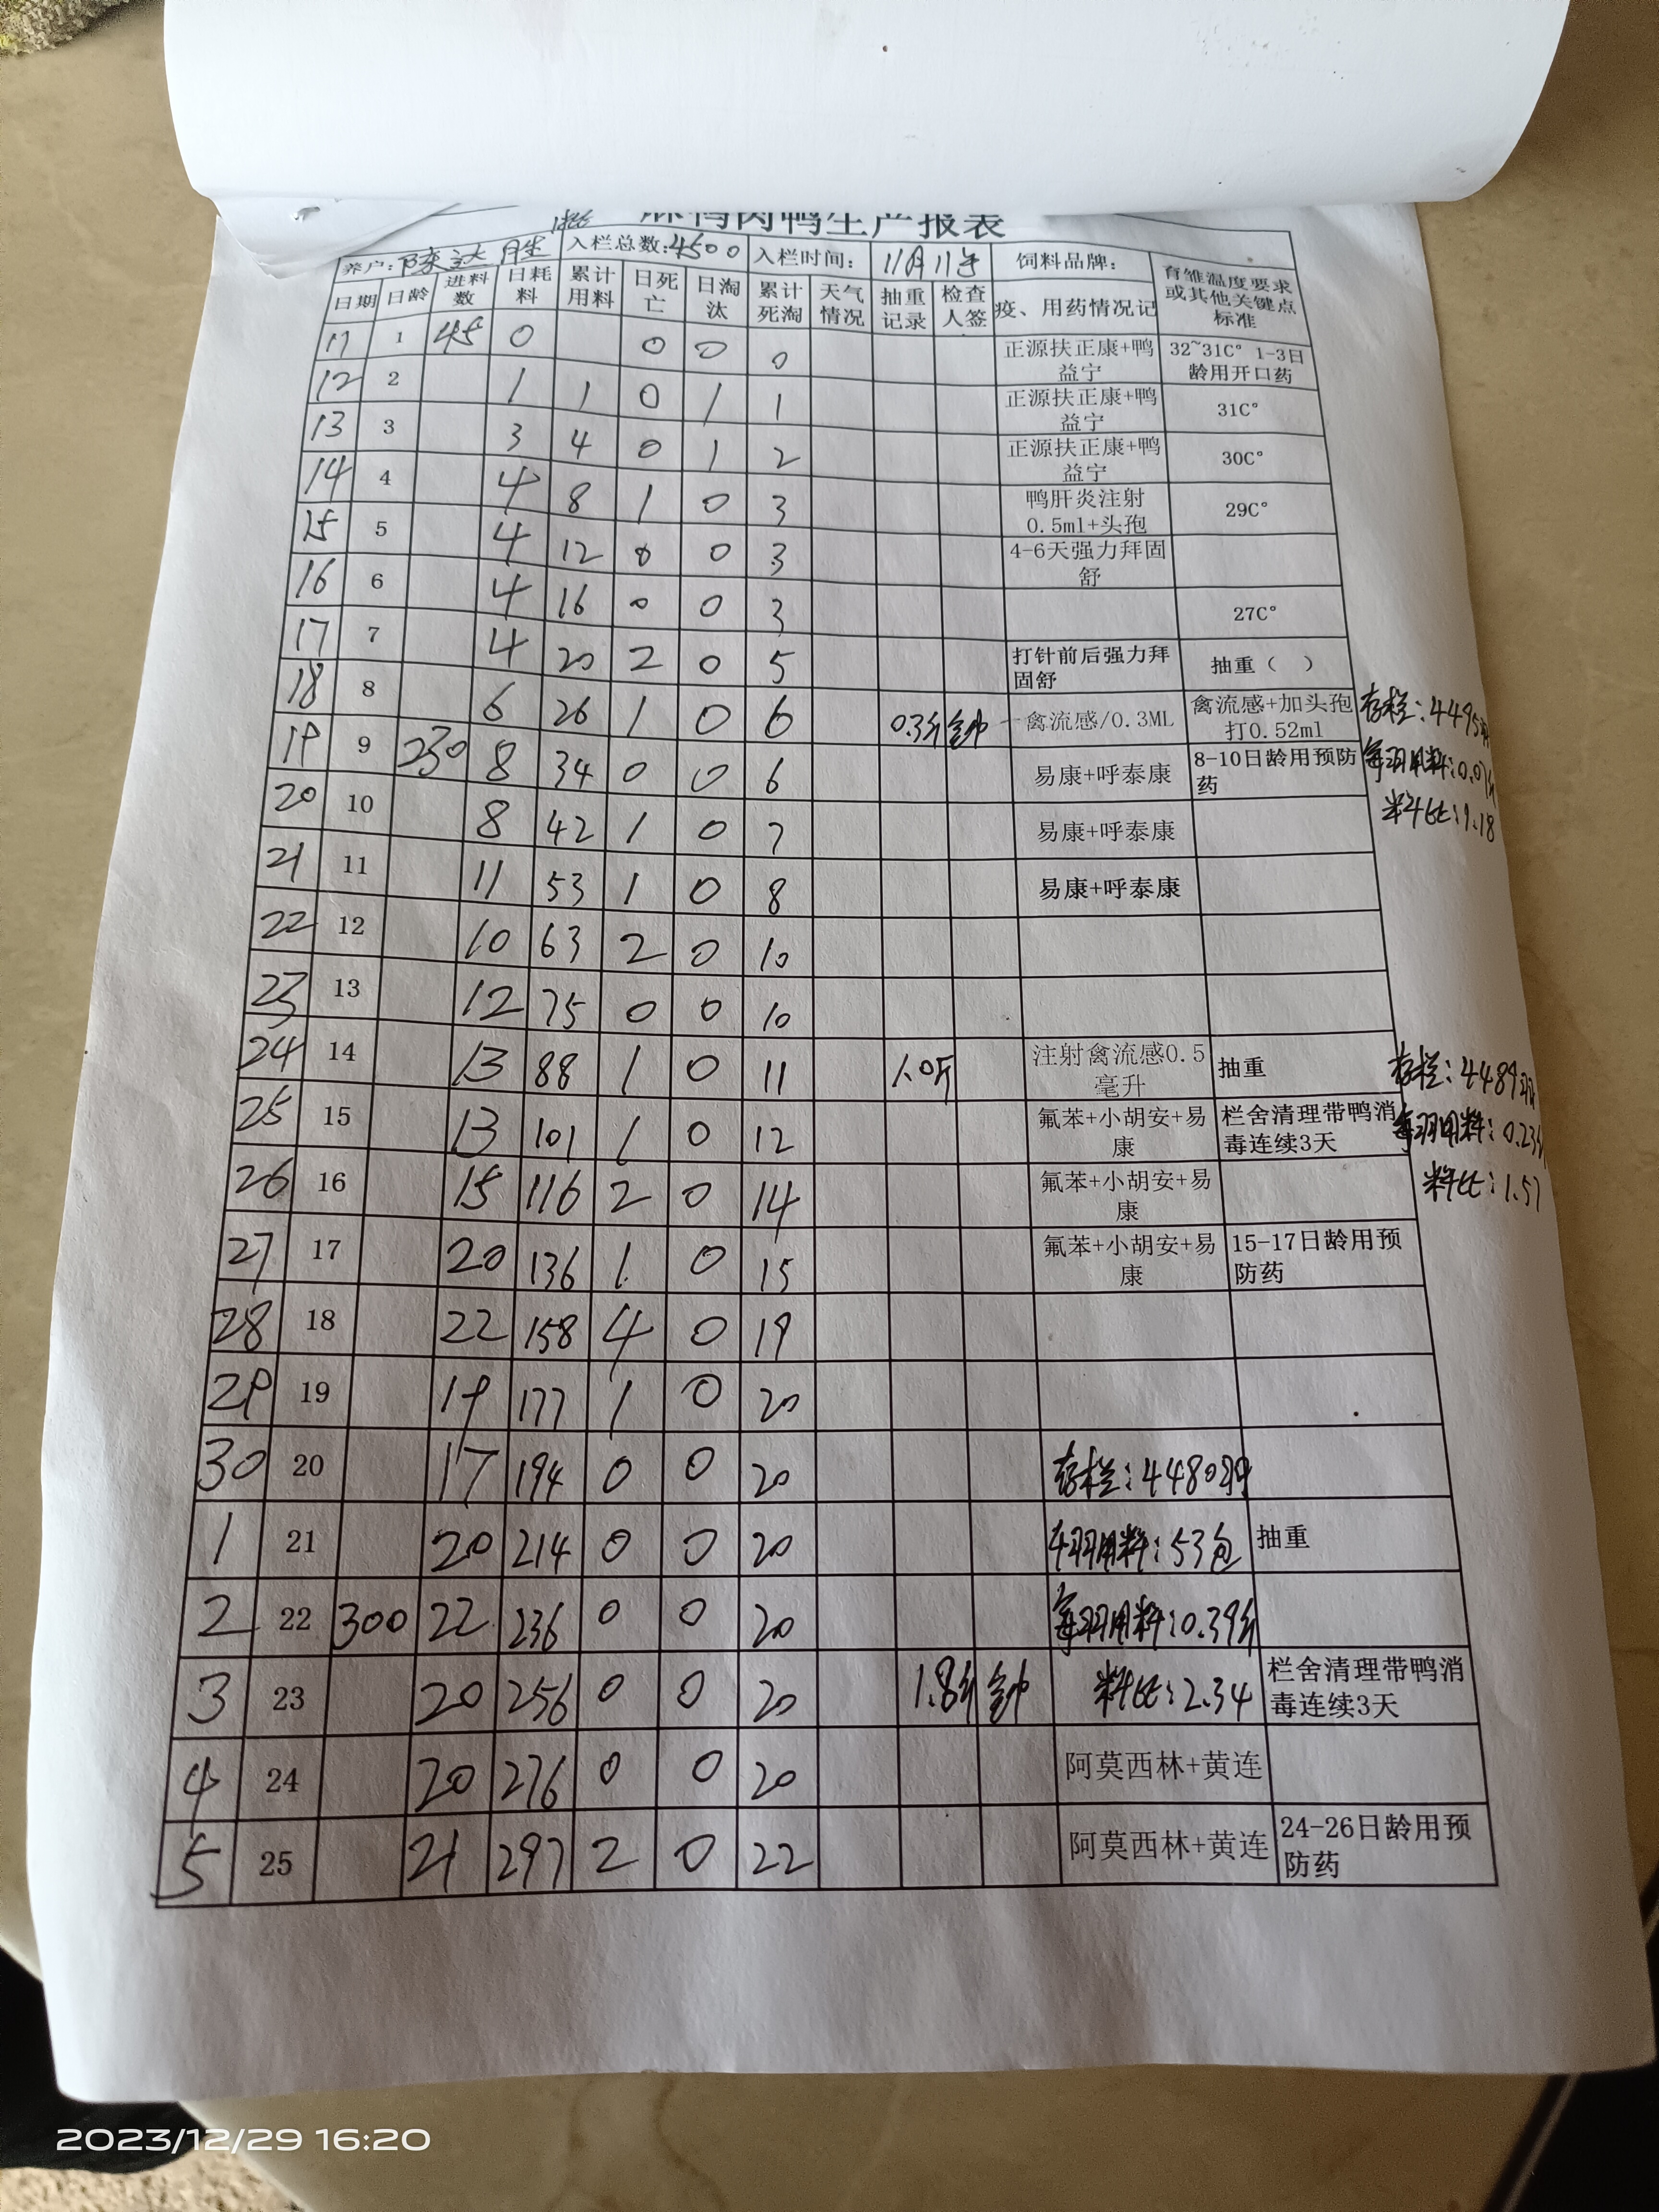 麻鸭肉鸭生产报表
养户: 陈达胜 入栏总数:4500 入栏时间: 11月11号 饲料品牌: 育雏温度要求或其他关键点标准
日期 日龄 进料数 日耗料 累计用料 日死亡 日淘汰 累计死淘 天气情况 抽重记录 检查人签 疫、用药情况记
11 1 45 0 0 0 0 正源扶正康+鸭益宁 32~31C° 1-3日龄用开口药
12 2 1 1 0 1 1 正源扶正康+鸭益宁 31C°
13 3 3 4 0 1 2 正源扶正康+鸭益宁 30C°
14 4 4 8 1 0 3 鸭肝炎注射0.5ml+头孢 29C°
15 5 4 12 0 0 3 4-6天强力拜固舒
16 6 4 16 0 0 3 27C°
17 7 4 20 2 0 5 打针前后强力拜固舒 抽重( )
18 8 6 26 1 0 6 0.3斤 禽流感/0.3ML 禽流感+加头孢打0.52ml 存栏:4495羽
19 9 230 8 34 0 0 6 易康+呼泰康 8-10日龄用预防药 每羽用料:0.07斤
20 10 8 42 1 0 7 易康+呼泰康 料比:9.18
21 11 11 53 1 0 8 易康+呼泰康
22 12 10 63 2 0 10
23 13 12 75 0 0 10
24 14 13 88 1 0 11 1.0斤 注射禽流感0.5毫升 抽重 存栏:4489羽
25 15 13 101 1 0 12 氟苯+小胡安+易康 栏舍清理带鸭消毒连续3天 每羽用料:0.23斤
26 16 15 116 2 0 14 氟苯+小胡安+易康 料比:1.57
27 17 20 136 1 0 15 氟苯+小胡安+易康 15-17日龄用预防药
28 18 22 158 4 0 19
29 19 19 177 1 0 20
30 20 17 194 0 0 20 存栏:4480羽
1 21 20 214 0 0 20 羽用料:53包 抽重
2 22 300 22 236 0 0 20 每羽用料:0.39斤
3 23 20 256 0 0 20 1.8斤 料比:2.34 栏舍清理带鸭消毒连续3天
4 24 20 276 0 0 20 阿莫西林+黄连
5 25 21 297 2 0 22 阿莫西林+黄连 24-26日龄用预防药
2023/12/29 16:20